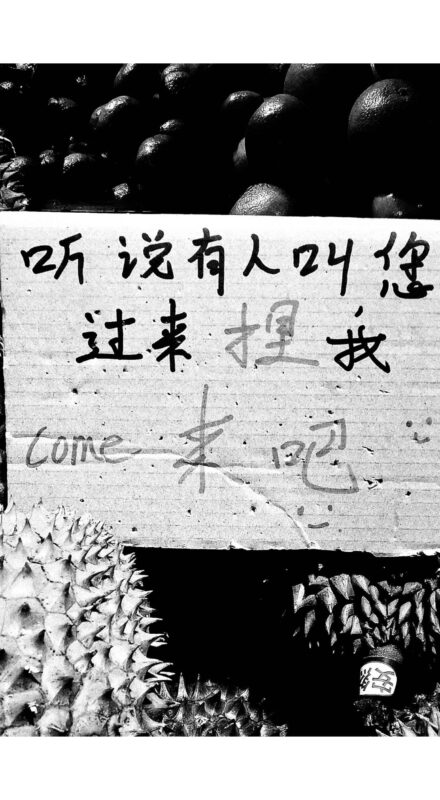 听说有人叫您
过来捏我
come 来吧